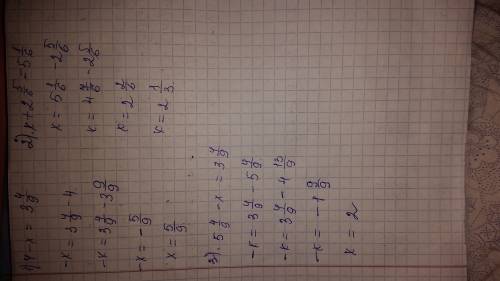 1) 4 - x = 3 4/9
-x = 3 4/9 - 4
-x = 3 4/9 - 3 9/9
-x = - 5/9
x = 5/9
2) x + 2 5/6 = 5 1/6
x = 5 1/6 - 2 5/6
x = 4 7/6 - 2 5/6
x = 2 2/6
x = 2 1/3.
3) 5 4/9 - x = 3 4/9
-x = 3 4/9 - 5 4/9
-x = 3 4/9 - 4 13/9
-x = -1 9/9
x = 2